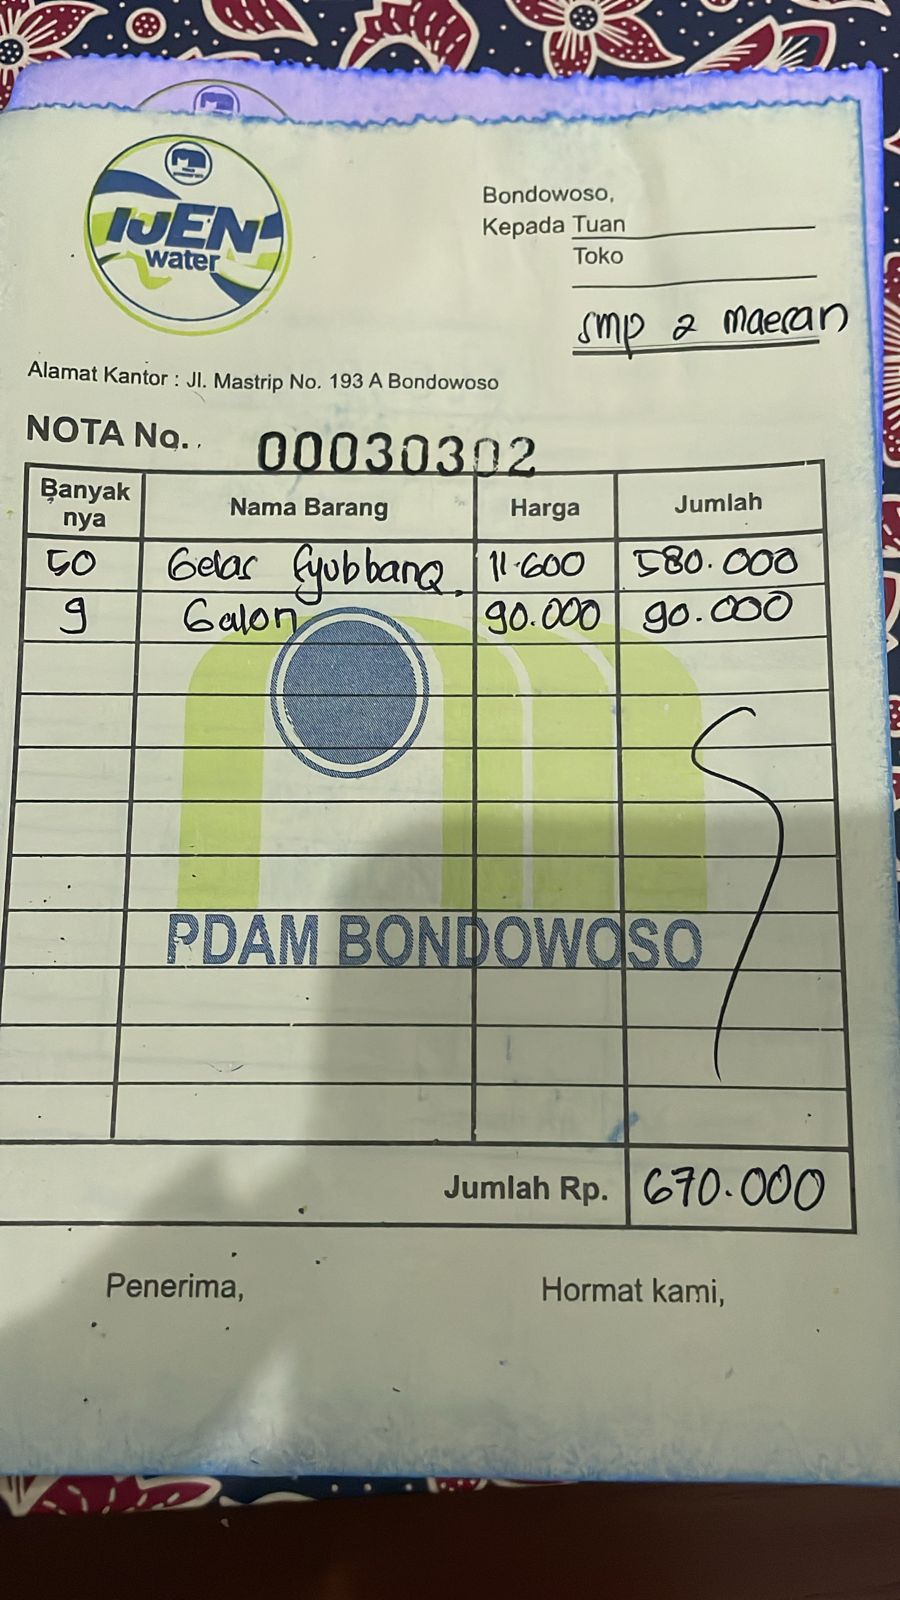 IJEN
water
Bondowoso,
Kepada Tuan
Toko
smp 2 maesan
Alamat Kantor : Jl. Mastrip No. 193 A Bondowoso
NOTA No. 00030302
Banyak nya Nama Barang Harga Jumlah
50 Gelas 11.600 580.000
9 Galon 90.000 90.000
PDAM BONDOWOSO
Jumlah Rp. 670.000
Penerima, Hormat kami,